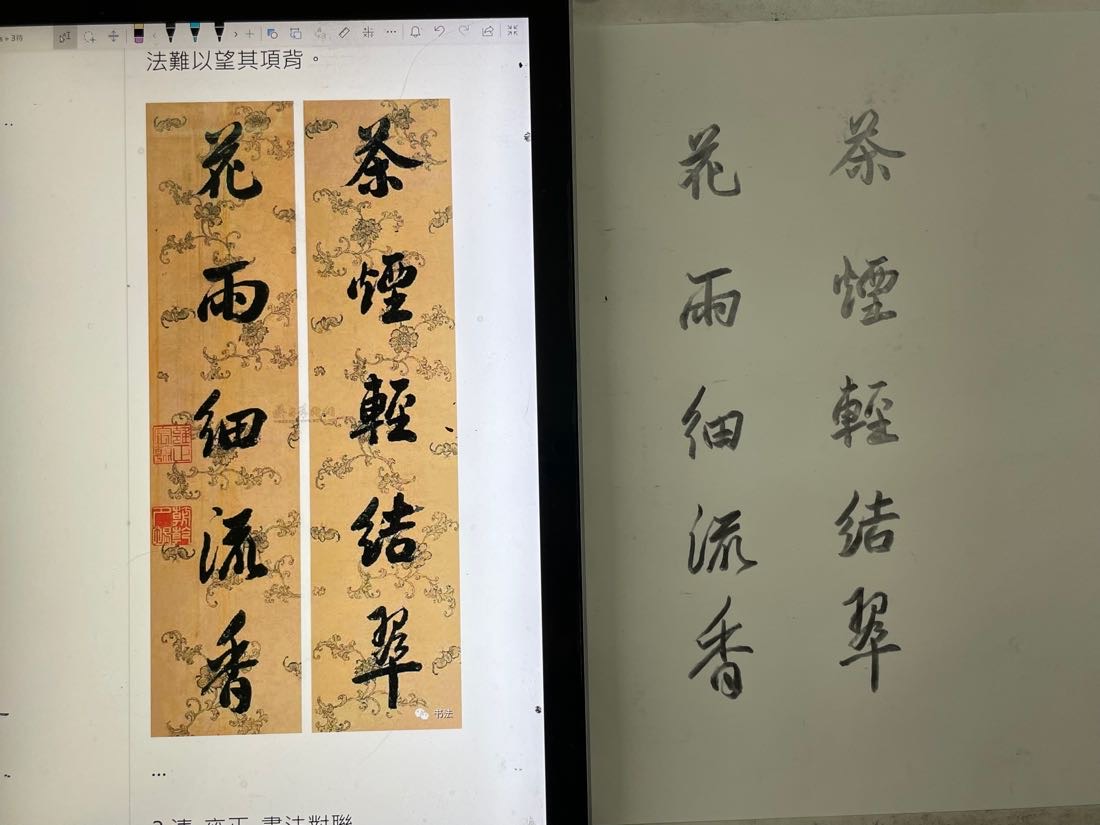 法難以望其項背。
茶煙輕結翠
花雨細流香
书法
...
茶煙輕結翠
花雨細流香